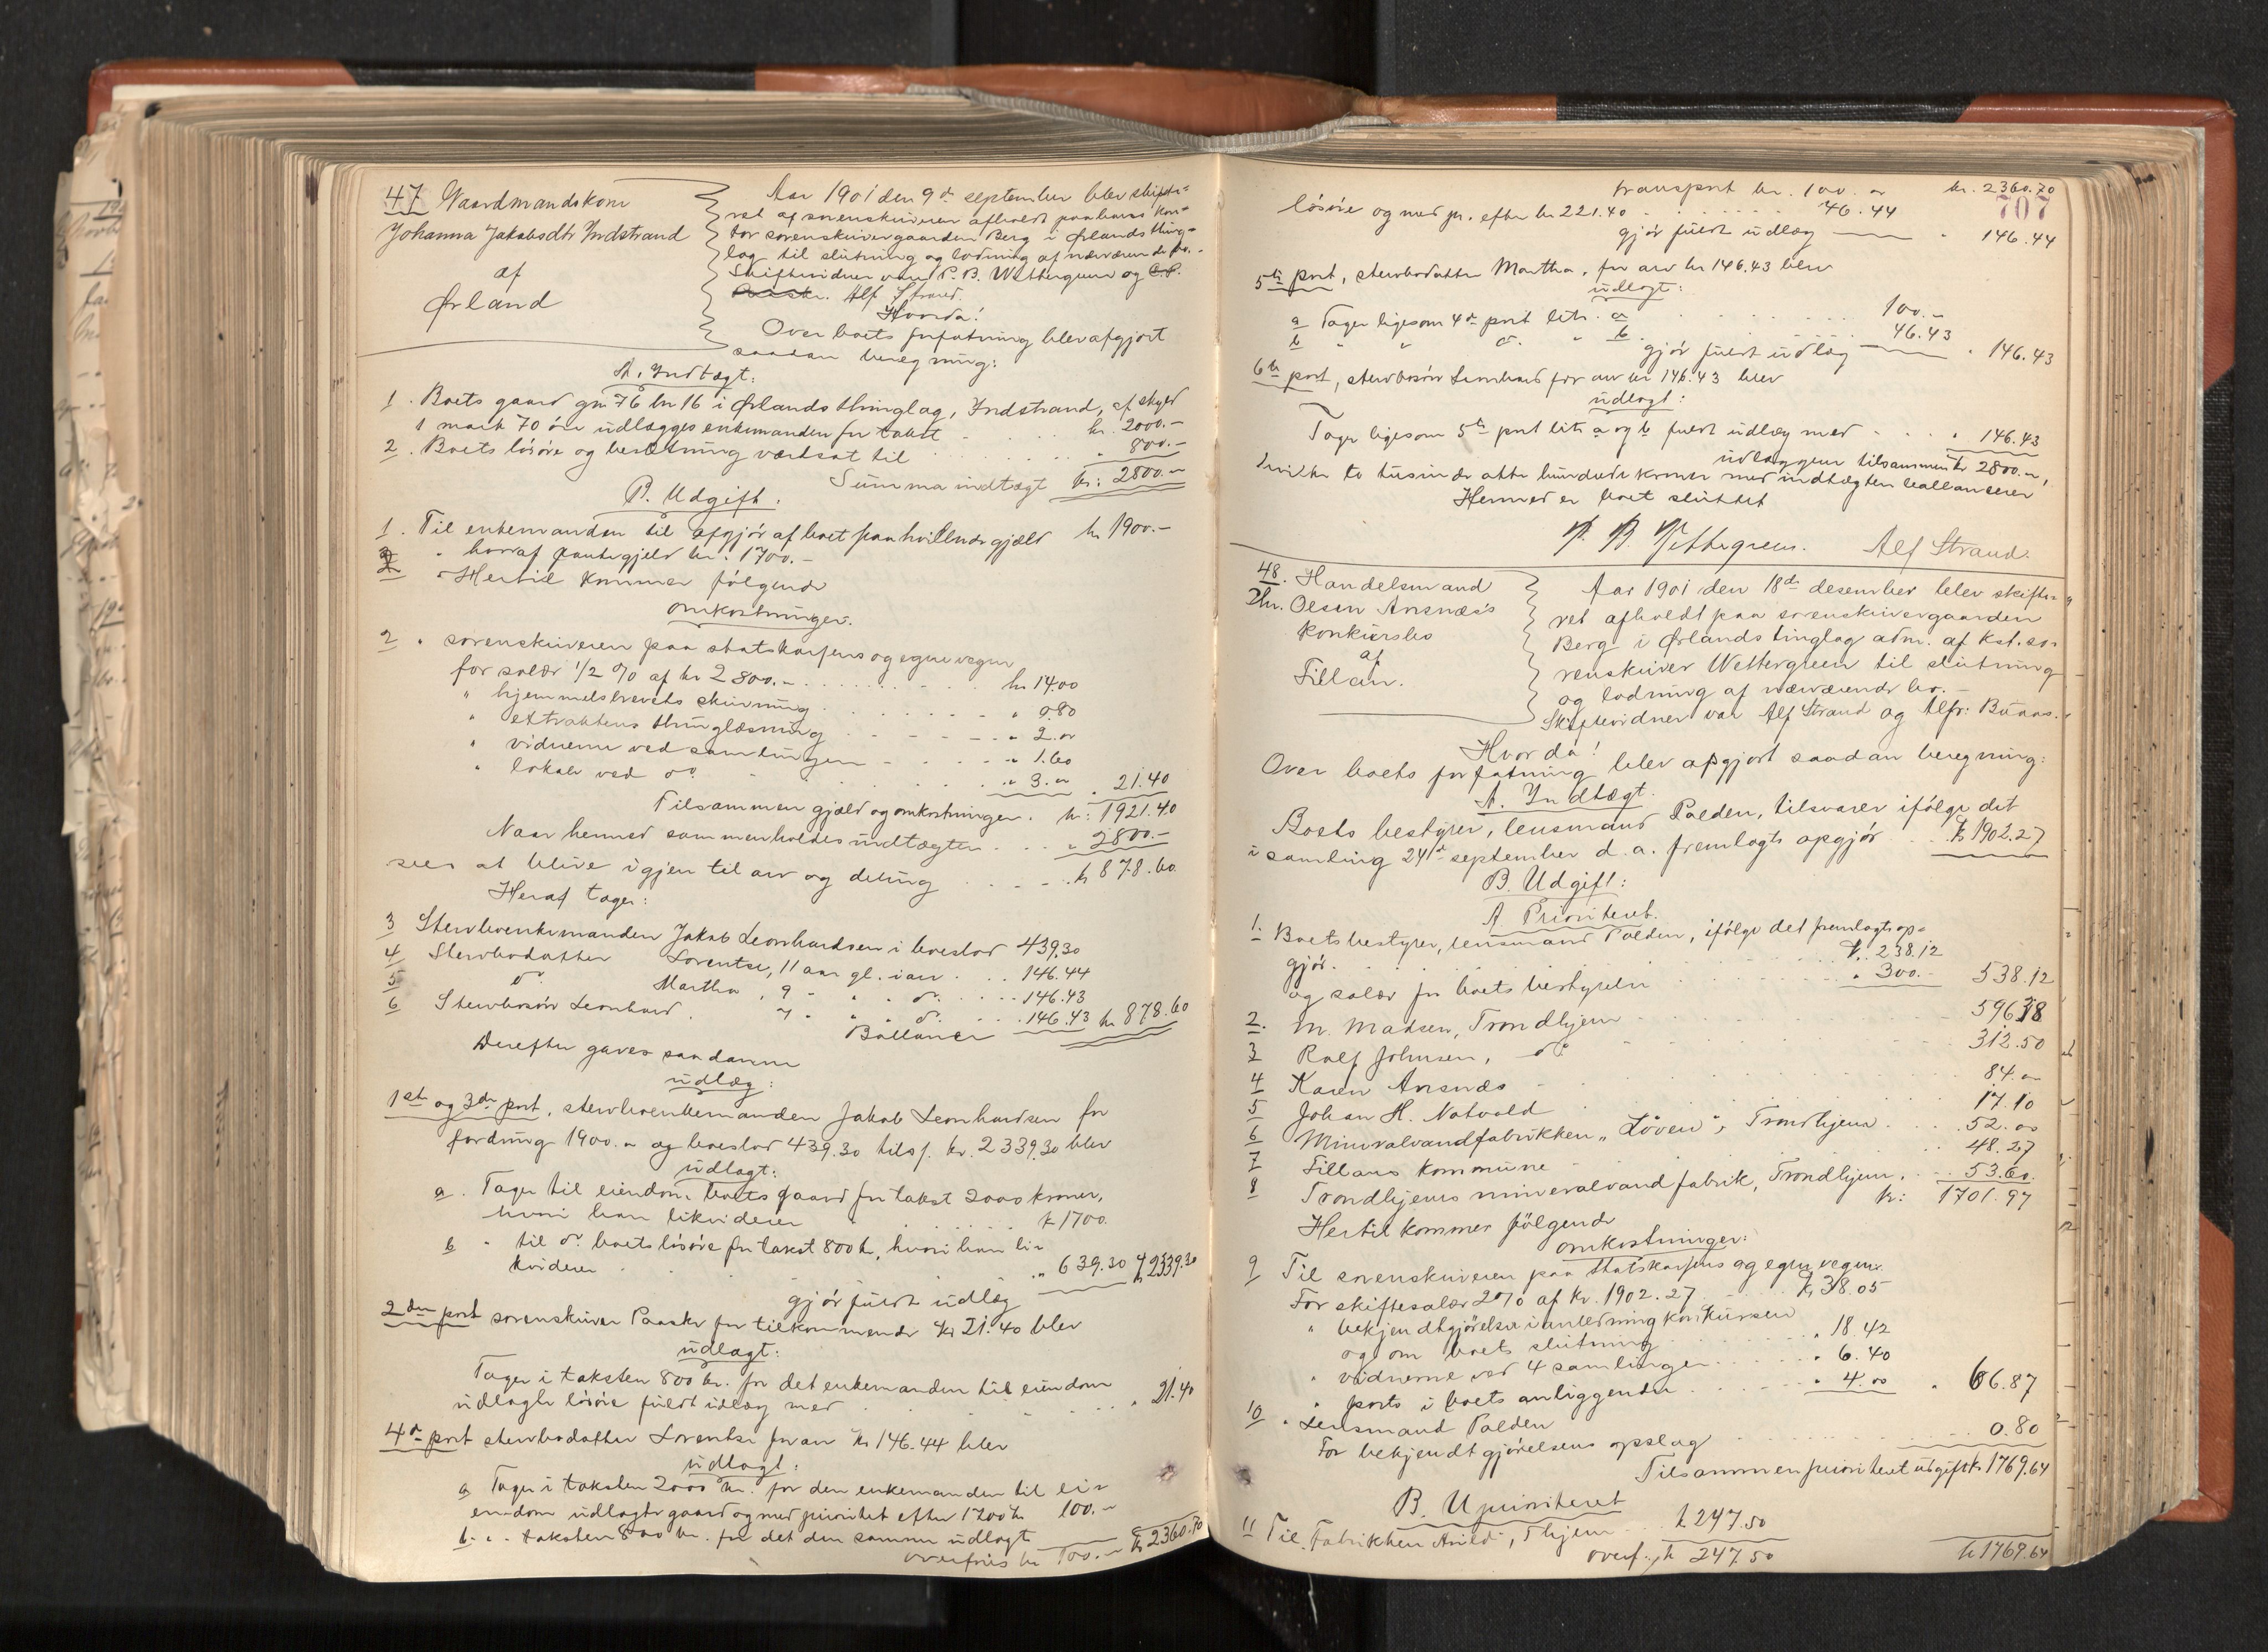 47 Gaardmandskone
Johanna Jakobsdtr Indstrand
af
Ørland
Aar 1901 den 9de september blev skifte-
ret af sorenskriveren afholdt paa hans kon-
tor sorenskrivergaarden Berg i Ørlands thing-
lag til slutning og lodning af nærværende bo.-
Skiftevidner var P. B. Wettergreen og
Alf Strand.
Hvorda!
Over boets forfatning blev afgjort
saadan beregning:
A. Indtægt:
1. Boets gaard gn 76 bn 16 i Ørlands thinglag, Indstrand, af skyld
1 mark 70 øre udlægges enkemanden for takst kr. 2000.-
2. Boets løsøre og besætning værdsat til " 800.-
Summa indtægt kr: 2800.-
B. Udgift.
1. Til enkemanden til afgjør af boet paahvilende gjæld kr 1900.-
" hvoraf pantegjeld kr. 1700.-
Hertil kommer følgende
omkostninger.
2 " sorenskriveren paa statskassens og egne vegne
for salær 1/2 % af kr 2800.- kr 14.00
" hjemmelsbrevets skrivning " 0.80
" extraktens thinglæsning " 2.00
" vidnerne ved samlingen " 1.60
" lokale ved do " 3.00 " 21.40
Tilsammen gjæld og omkostninger. kr: 1921.40
Naar hermed sammenholdes indtægten " 2800.-
sees at blive igjen til arv og deling kr 878.60
Heraf tager:
3 Stervboenkemanden Jakob Leonhardsen i boeslod 439.30
4 Stervbodatter Lorentse, 11 aar gl. i arv 146.44
5 do Martha, 9 " " do 146.43
6 Stervbosøn Leonhard, 7 " " do 146.43 kr 878.60
Ballancer
Derefter gaves saadanne
udlæg:
1ste og 3de post, stervboenkemanden Jakob Leonhardsen for
fordring 1900.- og boeslod 439.30 tils. kr. 2339.30 blev
udlagt:
a. Tager til eiendom boets gaard for takst 2000 kroner,
hvori han likviderer kr 1700.
b " til do boets løsøre for takst 800 kr, hvori han li-
kviderer " 639.30 kr 2339.30
gjør fuldt udlæg
2den post sorenskriver Paaske for tilkommende kr 21.40 blev
udlagt:
Tager i taksten 800 kr. for det enkemanden til eiendom
udlagte løsøre fuldt udlæg med " 21.40
4de post stervbodatter Lorentse for arv kr 146.44 blev
udlagt:
a Tager i taksten 2000 kr. for den enkemanden til ei-
endom udlagte gaard og med prioritet efter 1700 kr 100.-
b. " taksten 800 kr. for det den samme udlagte
overføres kr 100.- kr 2360.70
transport kr. 100.- kr. 2360.70
707
løsøre og med pr. efter kr 221.40 46.44
gjør fuldt udlæg " 146.44
5te post, stervbodatter Martha, for arv kr 146.43 blev
udlagt:
a Tager ligesom 4de post litr. a 100.-
b " " do " b 46.43
gjør fuldt udlæg " 146.43
6te post, stervbosøn Leonhard for arv kr 146.43 blev
udlagt:
Tager ligesom 5te post litr a og b fuldt udlæg med " 146.43
udlæggene tilsammen kr 2800.-,
hvilke to tusinde otte hundrede kroner med indtægten ballancerer
Hermed er boet sluttet
P. B. Wettergreen. Alf Strand.
48. Handelsmand
Chr. Olsen Ansnæs's
konkursbo
af
Fillan.
Aar 1901 den 18de desember blev skifte-
ret afholdt paa sorenskrivergaarden
Berg i Ørlands tinglag adm. af kst. so-
renskriver Wettergreen til slutning
og lodning af nærværende bo.-
Skiftevidner var Alf Strand og Alfr: Buaas.
Hvorda!
Over boets forfatning blev afgjort saadan beregning:
A. Indtægt.
Boets bestyrer, lensmand Palden, tilsvarer ifølge det
i samling 24de september d. a. fremlagte opgjør kr 1902.27
B. Udgift:
A Prioriteret.
1. Boets bestyrer, lensmand Palden, ifølge det fremlagte op-
gjør. kr. 238.12
og salær for boets bestyrelse " 300.- 538.12
2. M. Madsen, Trondhjem 596.38
3 Rolf Johnsen, do 312.50
4 Karen Ansnæs 84.00
5 Johan H. Notvold 17.10
6 Mineralvandfabrikken „Løven", Trondhjem 52.00
7 Fillans kommune 48.27
8 Trondhjems mineralvandfabrik, Trondhjem, 53.60.
kr: 1701.97
Hertil kommer følgende
omkostninger:
9 Til sorenskriveren paa statskassens og egne vegne
For skiftesalær 2% af kr. 1902.27 kr 38.05
" bekjendtgjørelse i anledning konkursen
og om boets slutning " 18.42
" vidnerne ved 4 samlinger " 6.40
" porto i boets anliggender " 4.00 " 66.87
10 " Lensmand Palden
For bekjendtgjørelsens opslag 0.80
Tilsammen prioriteret udgift kr 1769.64
B. Uprioriteret
11 Til Fabrikken Arild, Thjem kr 247.50
overf. kr 247.50 kr 1769.64